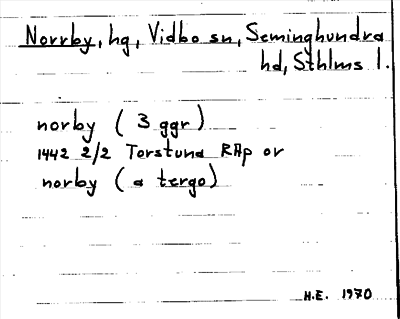 Norrby, hg, Vidbo sn, Seminghundra
hd, Sthlms l.
norby (3 ggr)
1442 2/2 Torstuna RAp or
norby (a tergo)
H.E. 1970